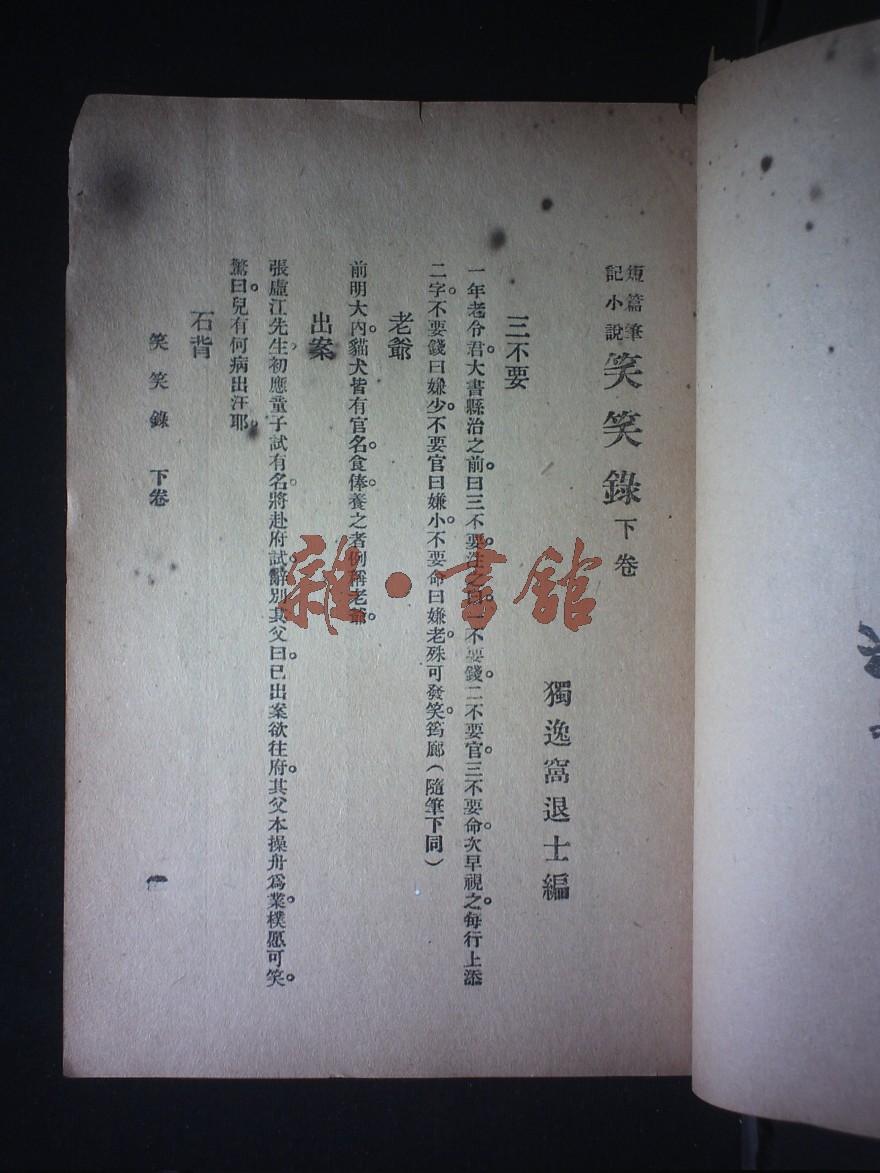 短篇筆記小說 笑笑錄 下卷
獨逸窩退士編
三不要
一年老令君。大書縣治之前。曰三不要。注之曰。一不要錢。二不要官。三不要命。次早視之。每行上添
二字。不要錢曰嫌少。不要官曰嫌小。不要命曰嫌老。殊可發笑。筠廊(隨筆下同)
老爺
前明大內。貓犬皆有官名。食俸。養之者例稱老爺。
出案
張虛江先生。初應童子試有名。將赴府試。辭別其父。曰已出案欲往府。其父本操舟爲業。樸愿可笑。
驚曰。兒有何病出汗耶。
石背
笑笑錄 下卷
一
雜·書館